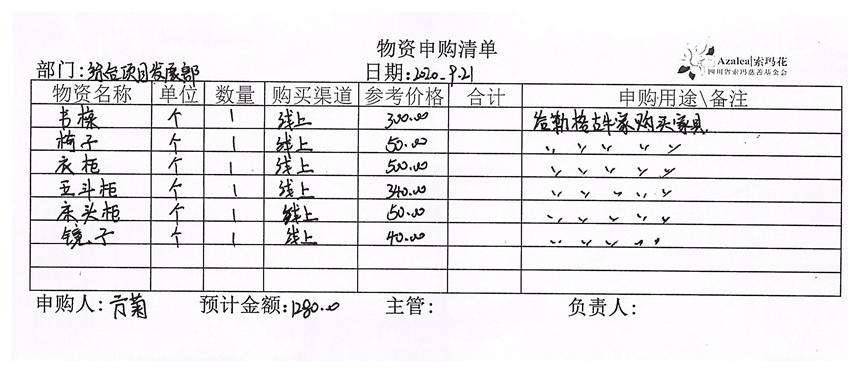 物资申购清单
Azalea|索玛花
四川省索玛慈善基金会
部门:综合项目发展部 日期:2020.9.21
物资名称 单位 数量 购买渠道 参考价格 合计 申购用途\备注
书桌 个 1 线上 300.00 给勒格古牛家购买家具
椅子 个 1 线上 50.00 〃 〃 〃 〃 〃
衣柜 个 1 线上 500.00 〃 〃 〃 〃 〃
五斗柜 个 1 线上 340.00 〃 〃 〃 〃 〃
床头柜 个 1 线上 50.00 〃 〃 〃 〃 〃
镜子 个 1 线上 40.00 〃 〃 〃 〃 〃
申购人: 预计金额:1280.00 主管: 负责人: